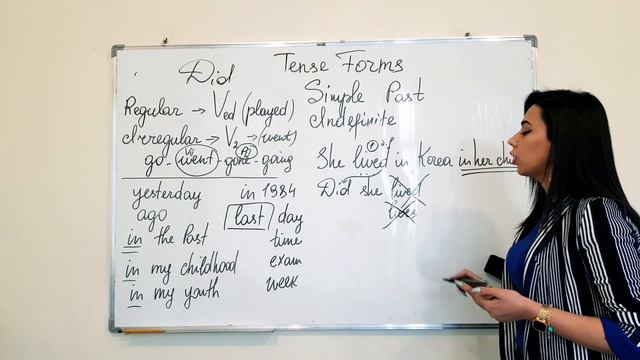 Did
Tense Forms
Simple Past
Indefinite
Regular → Ved (played)
Irregular → V2 → (went)
go - went - gone - going
She lived in Korea in her
Did she lived
lives
yesterday in 1984
ago last day
in the Past time
in my childhood exam
in my youth week